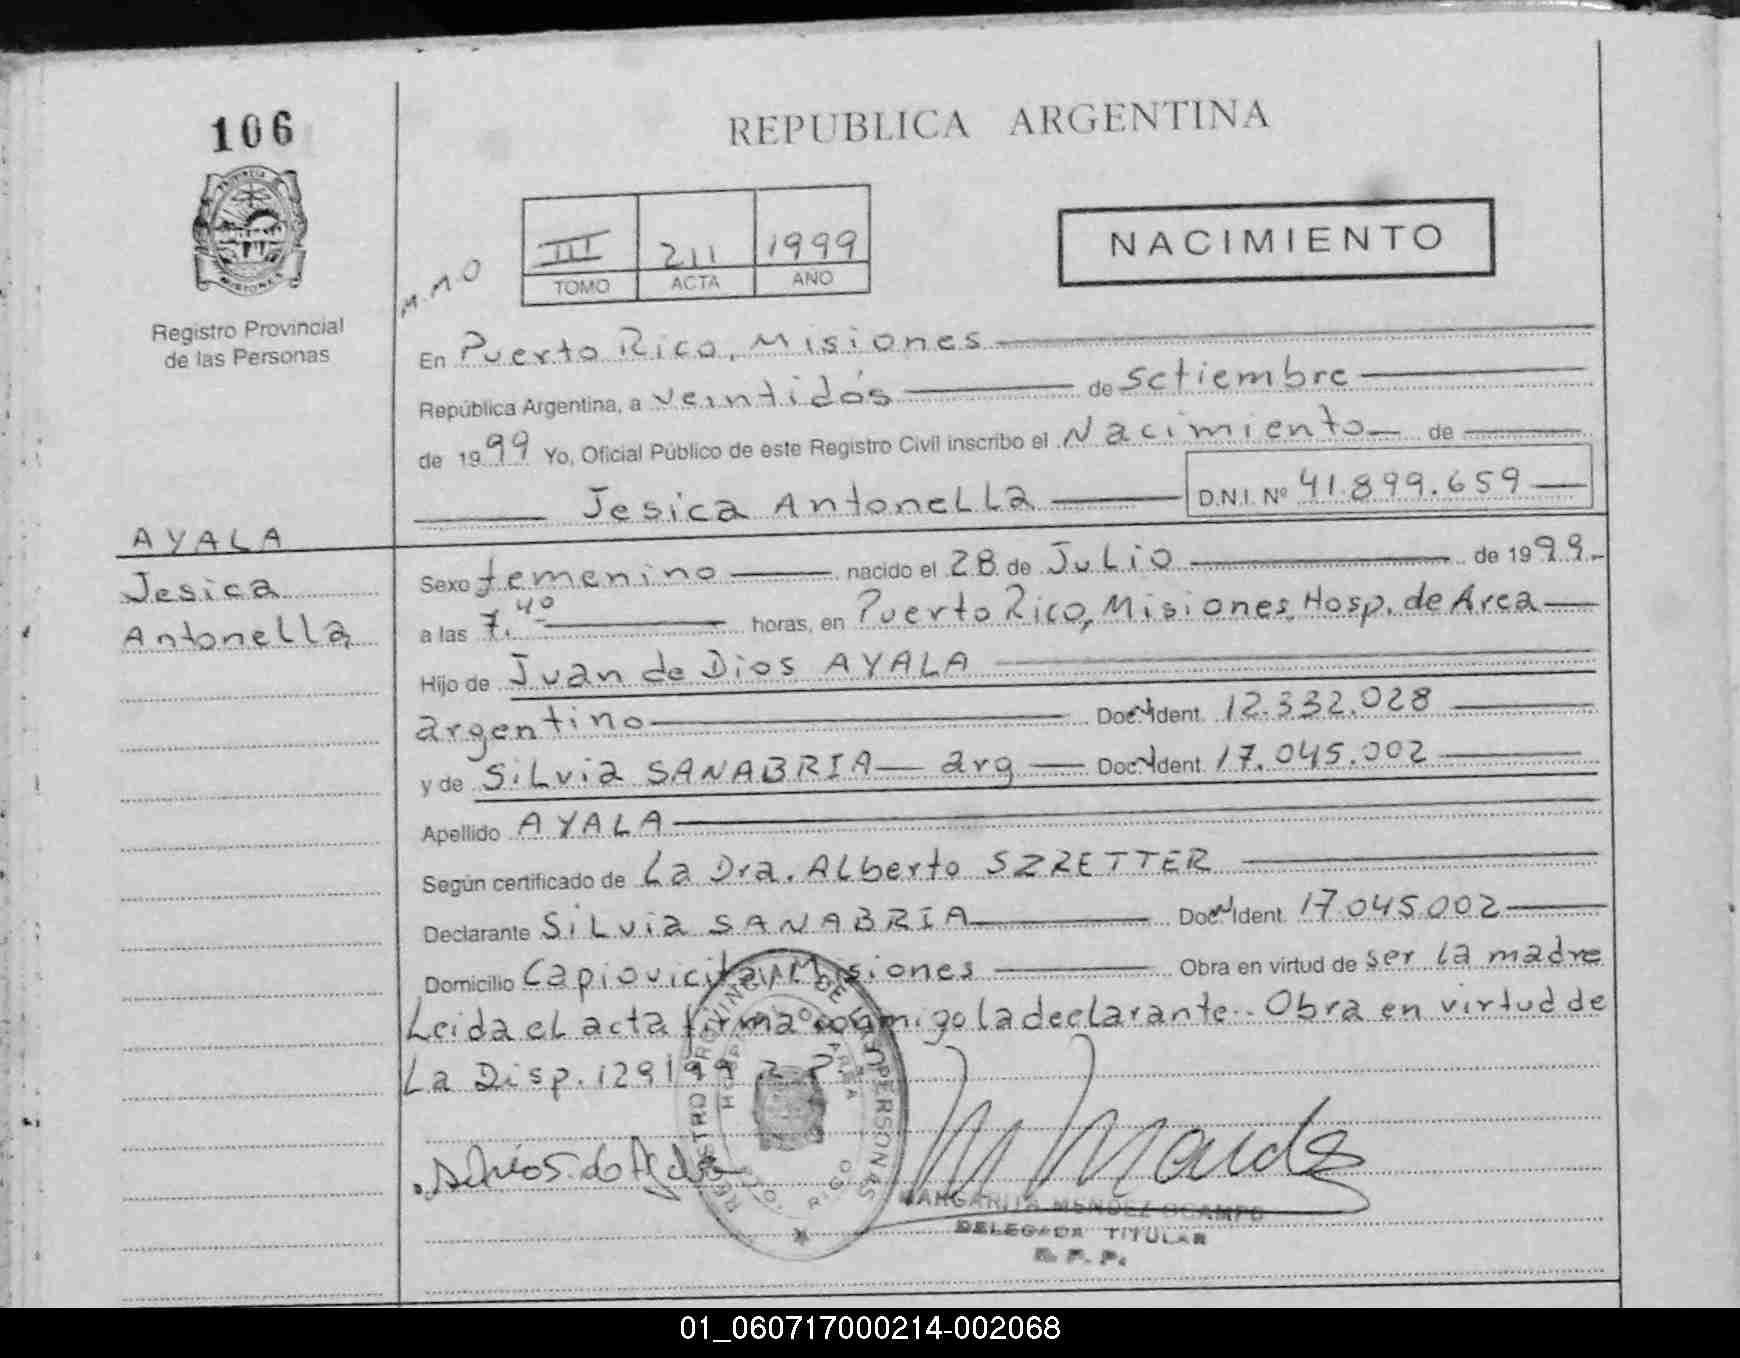 106
REPUBLICA ARGENTINA
PROVINCIA
MISIONES
Registro Provincial
de las Personas
III 211 1999
TOMO ACTA AÑO
NACIMIENTO
M.M.O
En Puerto Rico, Misiones
República Argentina, a veintidós de setiembre
de 1999 Yo, Oficial Público de este Registro Civil inscribo el Nacimiento de
Jesica Antonella D.N.I. Nº 41.899.659
AYALA
Jesica
Antonella
Sexo femenino nacido el 28 de Julio de 1999.
a las 7.40 horas, en Puerto Rico, Misiones, Hosp. de Area
Hijo de Juan de Dios AYALA
argentino Doc. Ident. 12.332.028
y de Silvia SANABRIA arg Doc. Ident. 17.045.002
Apellido AYALA
Según certificado de La Dra. Alberto SZRETTER
Declarante Silvia SANABRIA Doc. Ident. 17.045.002
Domicilio Capiovicita, Misiones Obra en virtud de ser la madre
Leida el acta firma conmigo la declarante.. Obra en virtud de
La Disp. 129/99
REGISTRO PROVINCIAL DE LAS PERSONAS
MARGARITA MENDEZ OCAMPO
DELEGADA TITULAR
R. P. P.
01_060717000214-002068